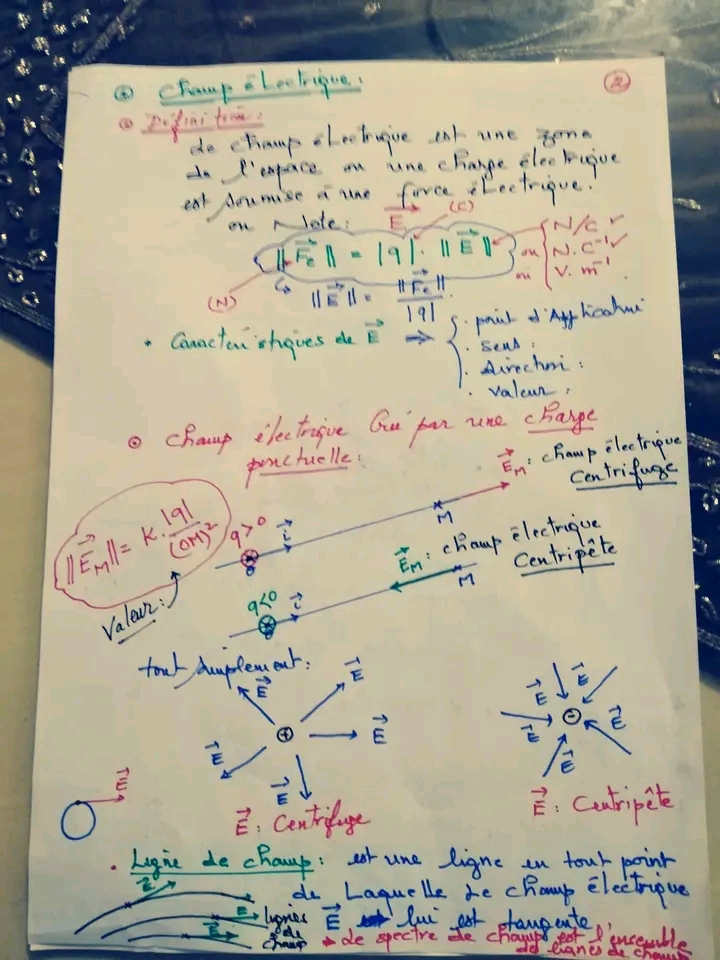 Champ électrique :
2
Définition :
Le champ électrique est une zone
de l'espace ou une charge électrique
est soumise à une force électrique.
on Note : E (C)
||Fe|| = |q| . ||E|| ou ou { N/C N.C⁻¹ V.m⁻¹
(N) ↳ ||E|| = ||Fe|| / |q|
• Caractéristiques de E ⇒ { . point d'Application
. sens :
. direction :
. valeur :
⊙ champ électrique Créé par une charge
ponctuelle :
E_M : champ électrique
Centrifuge
||E_M|| = K. |q| / (OM)²
q>0 i M
E_M : champ électrique
Centripête
M
Valeur :
q<0 i
tout simplement :
E E E E E
+
E E E E E
-
E
E : Centrifuge
E : Centripête
• Ligne de champ : est une ligne en tout point
de Laquelle Le champ électrique
E lui est tangente
E E E lignes de champ
→ Le spectre de champ est l'ensemble
de lignes de champ